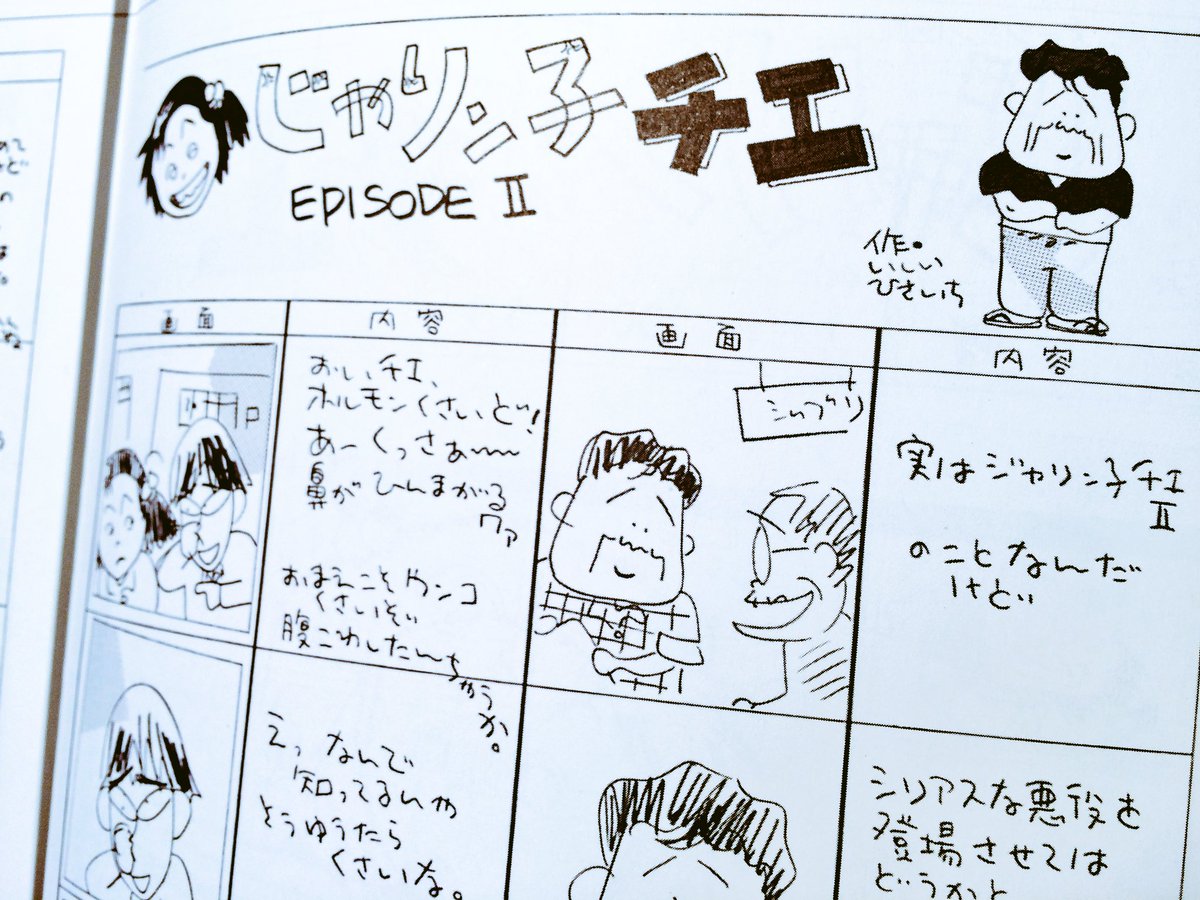 じゃリン子チエ
EPISODE II
作・
いしい
ひさいち
画面
内容
画面
内容
おいチエ、
ホルモンくさいど!
あーくっさぁ〜〜
鼻がひんまがる
ワァ
おまえこそウンコ
くさいぞ
腹こわしたんちゃうか。
えっなんで
知ってるんや
そうゆうたら
くさいな。
ジブリ
実はジャリン子チエ
II
のことなんだ
けど
シリアスな悪役を
登場させては
どうかと